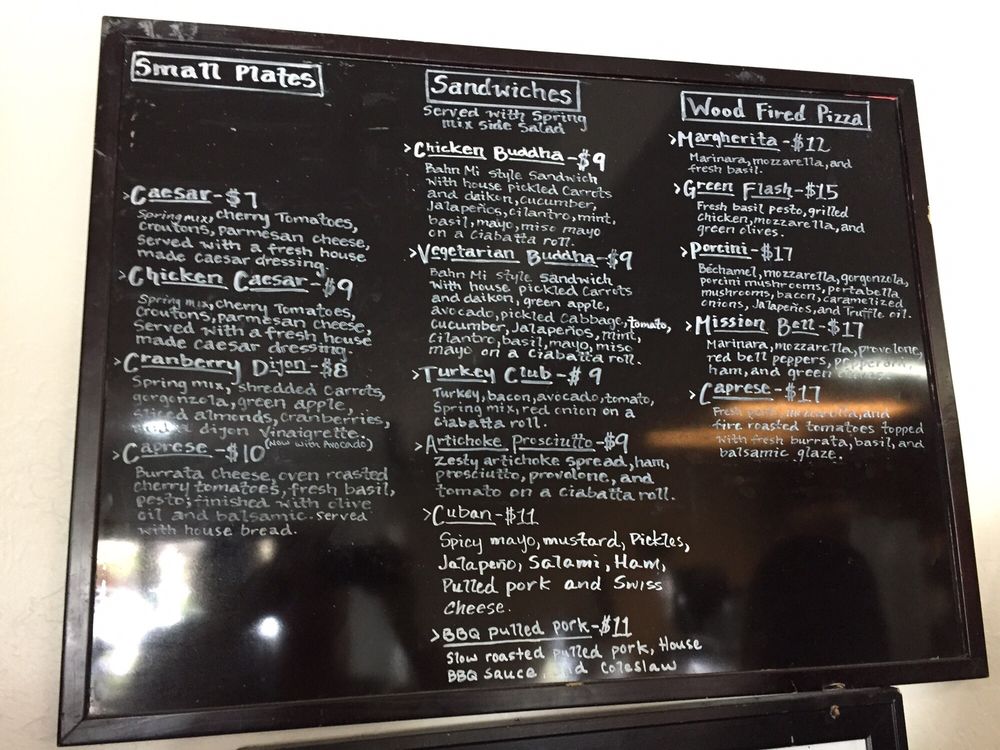 Small Plates
>Caesar-$7
Spring mix, cherry Tomatoes,
croutons, parmesan cheese,
Served with a fresh house
made caesar dressing.
>Chicken Caesar-$9
Spring mix, cherry Tomatoes,
croutons, parmesan cheese,
Served with a fresh house
made caesar dressing.
>Cranberry Dijon-$8
Spring mix, shredded Carrots,
gorgonzola, green apple,
sliced almonds, cranberries,
a dijon vinaigrette.
>Caprese-$10 (Now with Avocado)
Burrata cheese, oven roasted
cherry tomatoes, fresh basil,
pesto; finished with olive
oil and balsamic. served
with house bread.
Sandwiches
Served with Spring
mix side Salad
>Chicken Buddha-$9
Bahn Mi style Sandwich
with house pickled Carrots
and daikon, cucumber,
Jalapeños, cilantro, mint,
basil, mayo, miso mayo
on a ciabatta roll.
>Vegetarian Buddha-$9
Bahn Mi style Sandwich
with house pickled Carrots
and daikon, green apple,
avocado, pickled Cabbage, tomato,
cucumber, Jalapeños, mint,
cilantro, basil, mayo, miso
mayo on a ciabatta roll.
>Turkey Club-$9
Turkey, bacon, avocado, tomato,
Spring mix, red onion on a
ciabatta roll.
>Artichoke Prosciutto-$9
Zesty artichoke spread, ham,
prosciutto, provolone, and
tomato on a ciabatta roll.
>Cuban-$11
Spicy mayo, mustard, Pickles,
Jalapeño, Salami, Ham,
Pulled pork and Swiss
Cheese.
>BBQ pulled pork-$11
Slow roasted pulled pork, House
BBQ sauce and Coleslaw
Wood Fired Pizza
>Margherita-$12
Marinara, mozzarella, and
fresh basil.
>Green Flash-$15
Fresh basil pesto, grilled
chicken, mozzarella, and
green olives.
>Porcini-$17
Béchamel, mozzarella, gorgonzola,
porcini mushrooms, portabella
mushrooms, bacon, caramelized
onions, Jalapeños, and Truffle oil.
>Mission Bell-$17
Marinara, mozzarella, provolone,
red bell peppers, pepperoni,
ham, and green
>Caprese-$17
Fresh mozzarella, and
fire roasted tomatoes topped
with fresh burrata, basil, and
balsamic glaze.